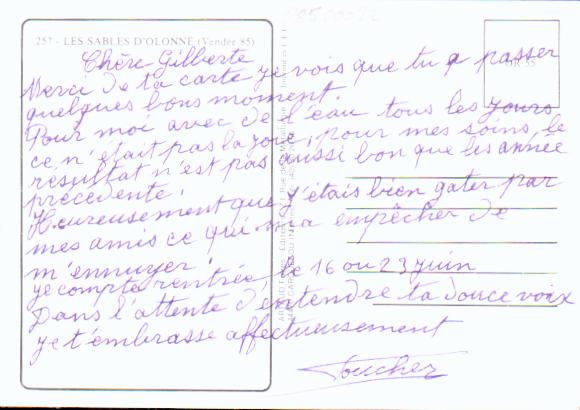 257 - LES SABLES D'OLONNE (Vendée 85)
Chère Gilberte
Merci de ta carte je vois que tu a passer
quelques bons moment.
Pour moi avec de l'eau tous les jours
ce n'était pas la joie, pour mes soins, le
résultat n'est pas aussi bon que les année
précédente!
Heureusement que j'étais bien gater par
mes amis ce qui m'a empêcher de
m'ennuyer!
je compte rentrée le 16 ou 23 juin
Dans l'attente d'entendre ta douce voix
je t'embrasse affectueusement